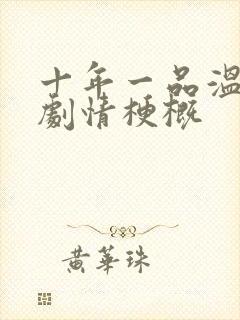 十年一品溫
劇情梗概
黃華珠